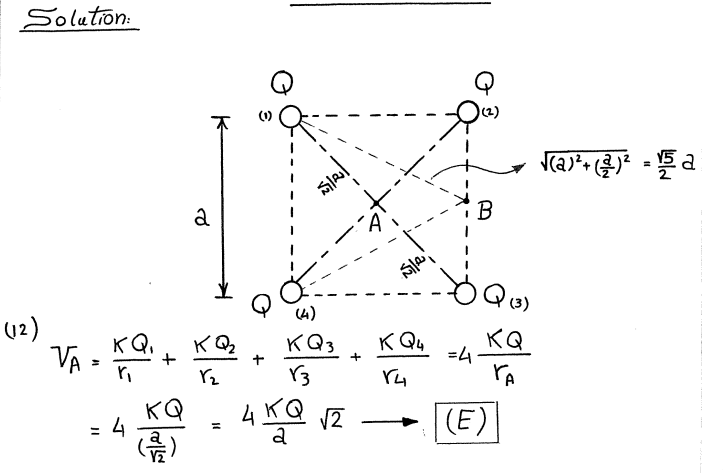 Solution:
Q Q
(1) (2)
√((a)²+(a/2)²) = √5/2 a
a/√2
a A B
a/√2
Q (4) Q (3)
(12) V_A = KQ₁/r₁ + KQ₂/r₂ + KQ₃/r₃ + KQ₄/r₄ = 4 KQ/r_A
= 4 KQ/(a/√2) = 4 KQ/a √2 → (E)